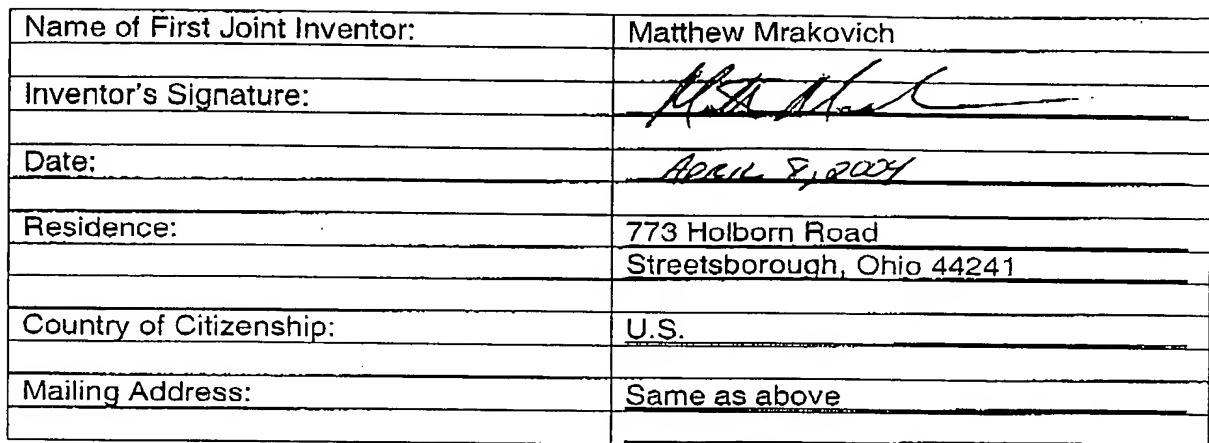 Name of First Joint Inventor: Matthew Mrakovich
Inventor's Signature:
Date: APRIL 8, 2004
Residence: 773 Holborn Road
Streetsborough, Ohio 44241
Country of Citizenship: U.S.
Mailing Address: Same as above